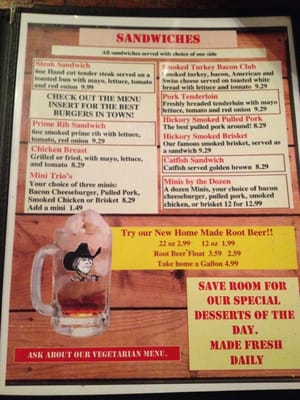 SANDWICHES
All sandwiches served with choice of one side
Steak Sandwich
6oz Hand cut tender steak served on a
toasted bun with mayo, lettuce, tomato
and red onion 9.99
CHECK OUT THE MENU
INSERT FOR THE BEST
BURGERS IN TOWN!
Prime Rib Sandwich
6oz smoked prime rib with lettuce,
tomato, red onion 9.29
Chicken Breast
Grilled or fried, with mayo, lettuce,
and tomato 8.29
Mini Trio's
Your choice of three minis:
Bacon Cheeseburger, Pulled Pork,
Smoked Chicken or Brisket 8.29
Add a mini 1.49
Smoked Turkey Bacon Club
Smoked turkey, bacon, American and
Swiss cheese served on toasted white
bread with lettuce and tomato 9.29
Pork Tenderloin
Freshly breaded tenderloin with mayo
lettuce, tomato and red onion 9.29
Hickory Smoked Pulled Pork
The best pulled pork around! 8.29
Hickory Smoked Brisket
Our famous smoked brisket, served as
a sandwich 9.29
Catfish Sandwich
Catfish served golden brown 8.29
Minis by the Dozen
A dozen Minis, your choice of bacon
cheeseburger, pulled pork, smoked
chicken, or brisket 12 for 12.99
Try our New Home Made Root Beer!!
22 oz 2.99 12 oz 1.99
Root Beer Float 3.59 2.59
Take home a Gallon 4.99
SAVE ROOM FOR
OUR SPECIAL
DESSERTS OF THE
DAY.
MADE FRESH
DAILY
ASK ABOUT OUR VEGETARIAN MENU.